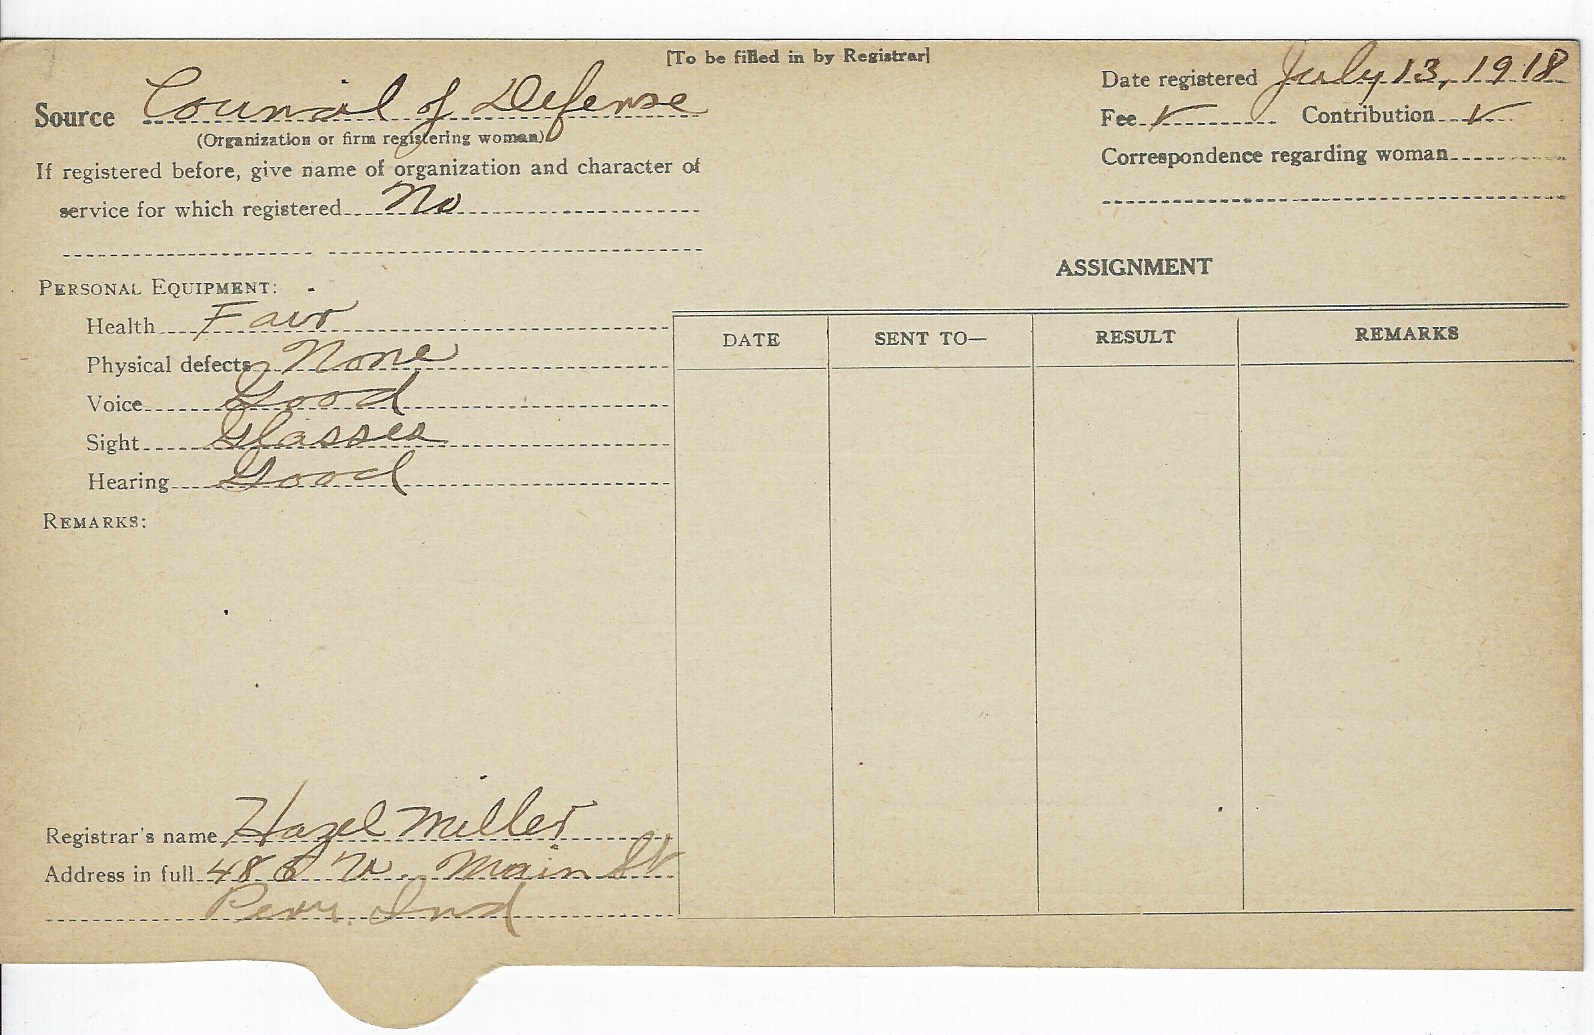 [To be filled in by Registrar]
Source Council of Defense
(Organization or firm registering woman)
If registered before, give name of organization and character of
service for which registered No
Date registered July 13, 1918
Fee ✓ Contribution ✓
Correspondence regarding woman
PERSONAL EQUIPMENT:
Health Fair
Physical defects None
Voice Good
Sight Glasses
Hearing Good
REMARKS:
ASSIGNMENT
DATE SENT TO— RESULT REMARKS
Registrar's name Hazel Miller
Address in full W. Main St
Peru Ind